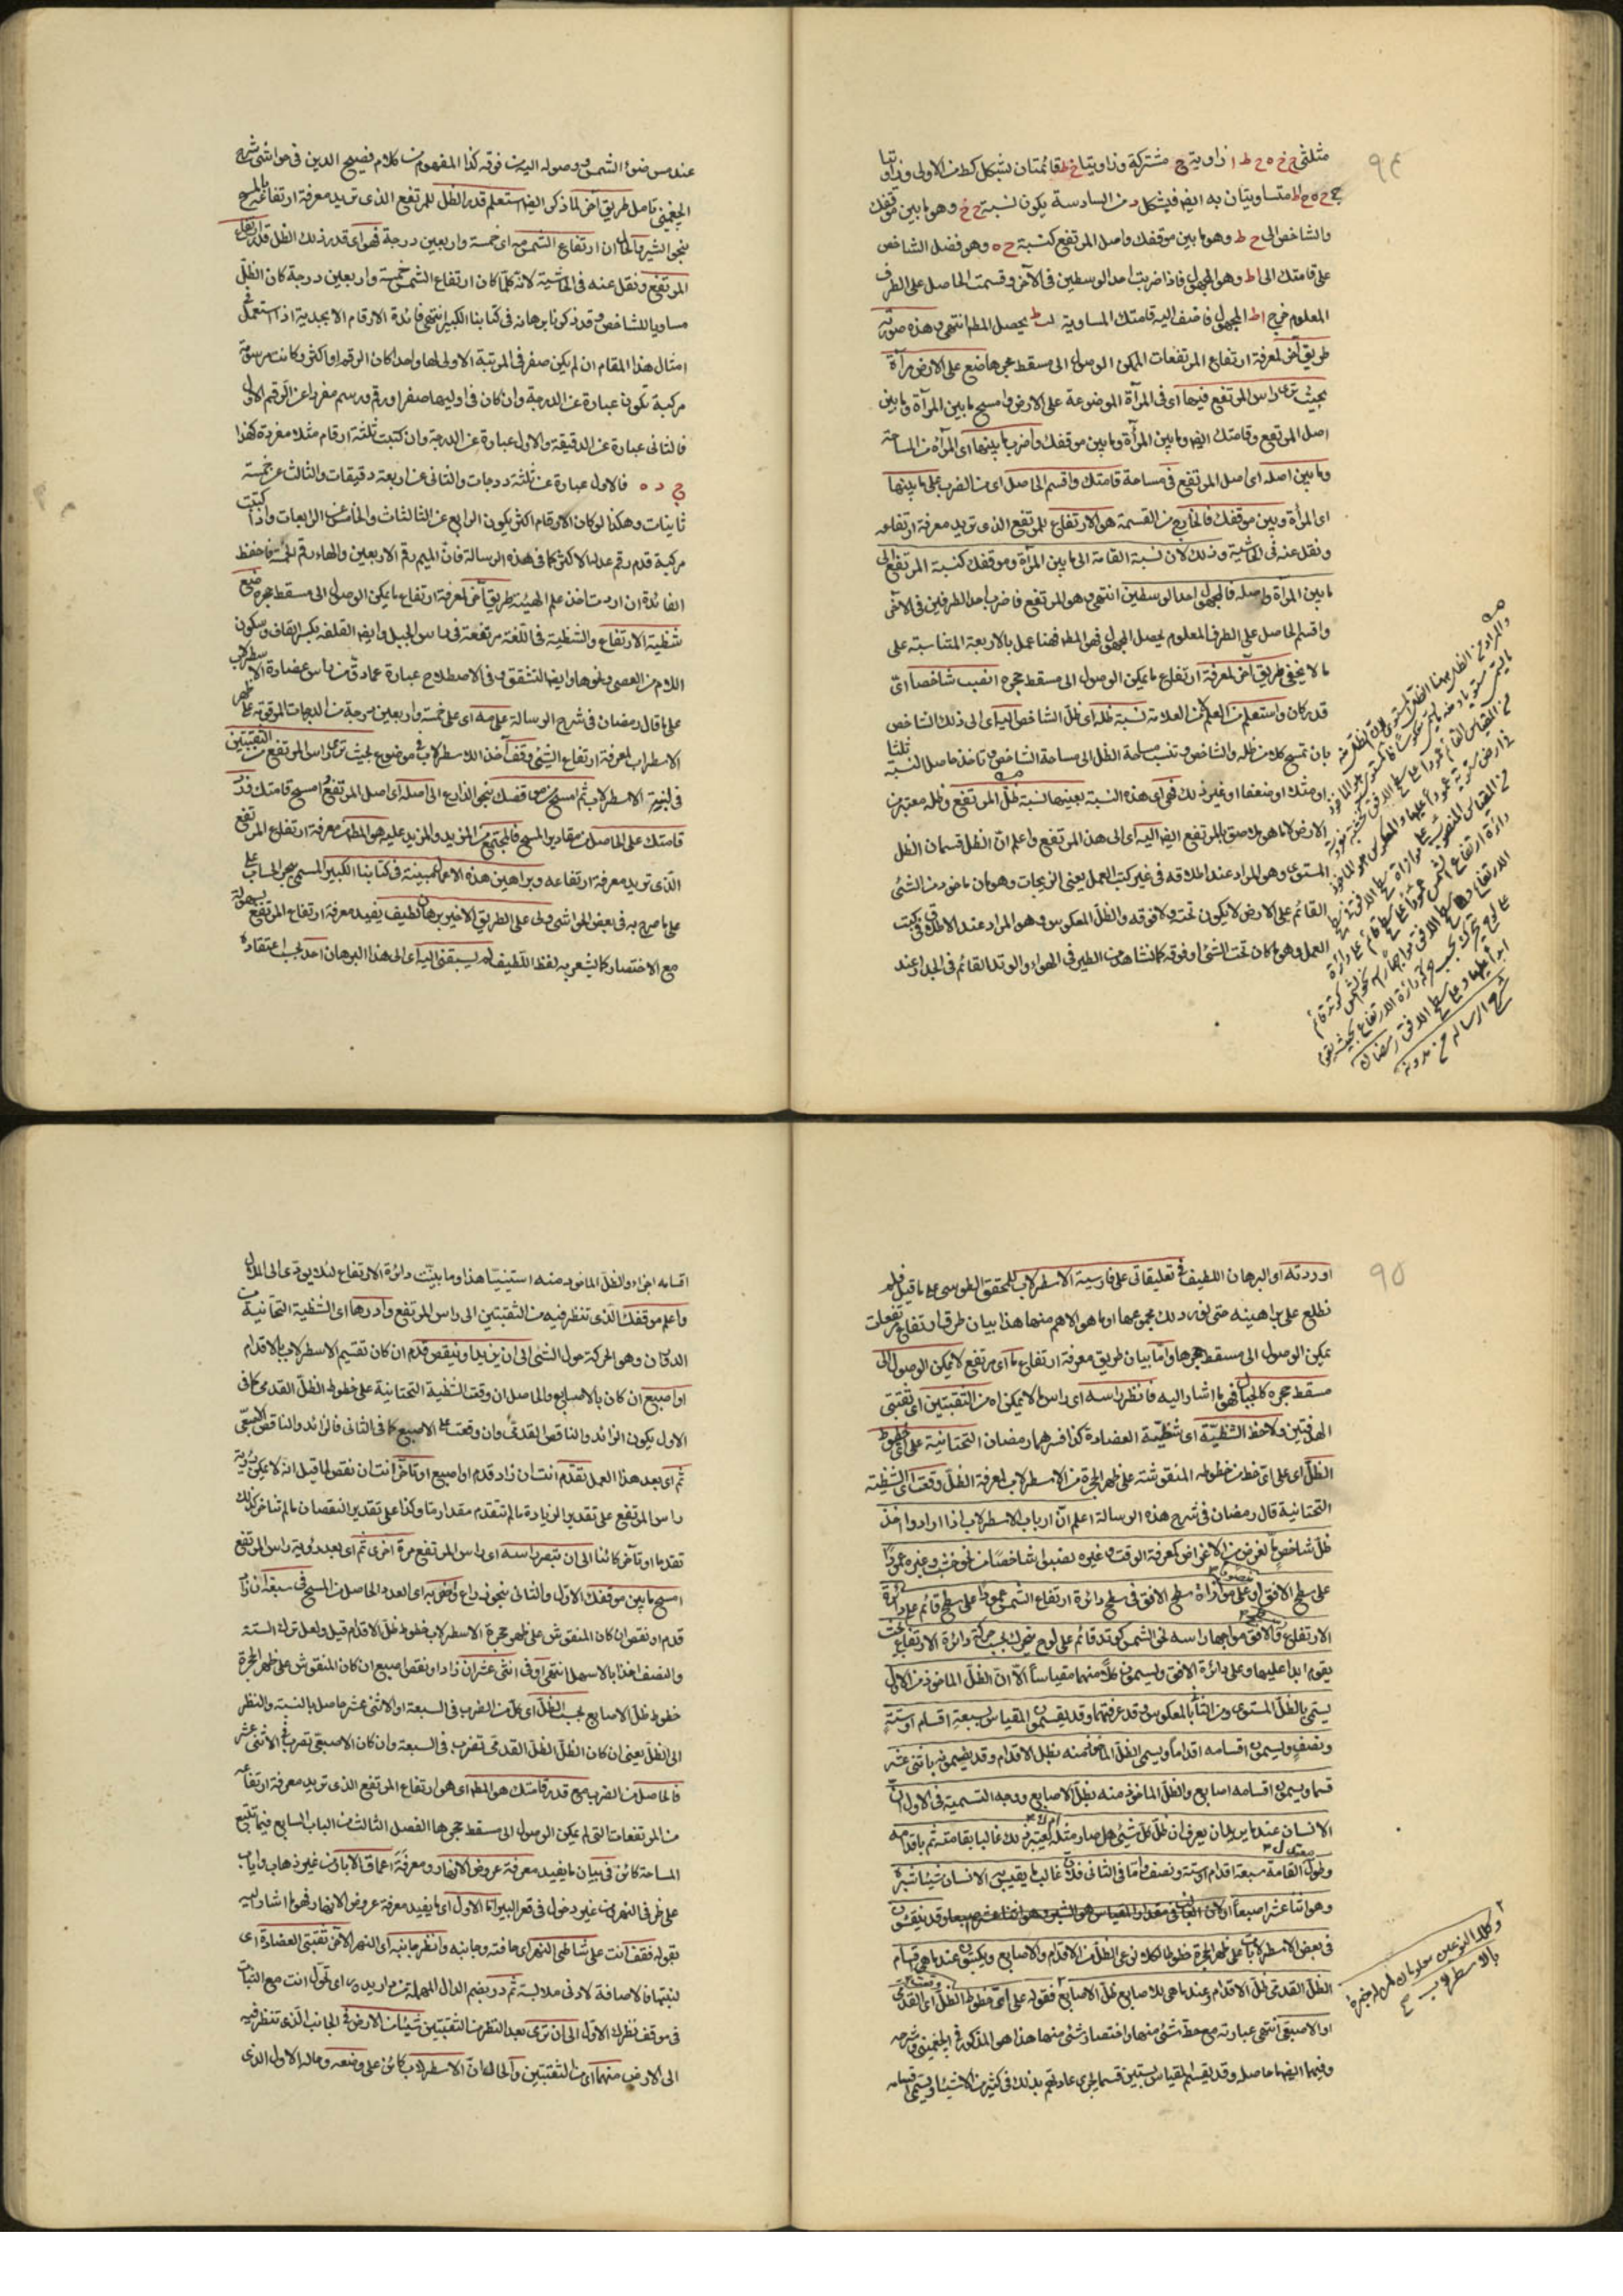 ٩٤
مثلثى ج ح ه ح ط ا زاوية ح مشتركة وزاويتا ح ط قائمتان بشكل كط من الاولى وزاويتا
ج ح ه ح ا ط متساويتان به ايضا فبشكل د من السادسة يكون نسبة ح ج وهو ما بين موقفك
والشاخص الى ح ط وهو ما بين موقفك واصل المرتفع كنسبة ح ه وهو فضل الشاخص
على قامتك الى ا ط وهو المجهول فاذا ضربت احد الوسطين فى الآخر وقسمت الحاصل على الطرف
المعلوم خرج ا ط المجهول فاضف اليه قامتك المساوية ل ب ط يحصل المط انتهى وهذه صورته
طريق آخر لمعرفة ارتفاع المرتفعات الممكن الوصول الى مسقط حجرها ضع على الارض مرآة
بحيث ترى راس المرتفع فيها اى فى المرآة الموضوعة على الارض وامسح ما بين المرآة وما بين
اصل المرتفع وقامتك ايضا وما بين المرآة وما بين موقفك واضرب ما بينها اى المرآة من المساحة
وما بين اصله اى اصل المرتفع فى مساحة قامتك واقسم الحاصل اى من الضرب على ما بينها
اى المرأة وبين موقفك فالخارج من القسمة هو الارتفاع للمرتفع الذى تريد معرفة ارتفاعه
ونقل عنه فى الحاشية وذلك لان نسبة القامة الى ما بين المرآة وموقفك كنسبة المرتفع الى
ما بين المرآة واصله فالمجهول احد الوسطين انتهى وهو المرتفع فاضرب احد الطرفين فى الآخر
واقسم الحاصل على الطرف المعلوم يحصل المجهول فهو المط فهنا عمل بالاربعة المتناسبة على
ما لا يخفى طريق آخر لمعرفة ارتفاع ما يمكن الوصول الى مسقط حجره انصب شاخصا اىّ
قدر كان واستعلم من العلم لا من العلامة نسبة ظله اى ظل الشاخص اليه اى الى ذلك الشاخص
بان تمسح كلا من ظله والشاخص وتنسب مساحة الظل الى مساحة الشاخص وتأخذ حاصل النسبة ثلثا
او مثلا او ضعفا او غير ذلك فهى اى هذه النسبة بعينها نسبة ظل المرتفع وظله معتبر من
الارض لا ما هو ملاصق بالمرتفع ايضا اليه اى الى هذا المرتفع واعلم ان الظل قسمان الظل
المستوى وهو المراد عند اطلاقه فى غير كتب العمل يعنى الزيجات وهو ما يؤخذ من الشئ
القائم على الارض لا يكون تحته ولا فوقه والظل المعكوس وهو المراد عند الاطلاق فى كتب
العمل وهو ما كان تحت الشئ او فوقه كما نشاهد من الطير فى الهواء والوتد القائم فى الجدار عند
عند مس ضوء الشمس ووصوله اليه من فوقه كذا المفهوم من كلام فصيح الدين فى حواشى شرح
الجغمنى تامل طريق آخر لما ذكر ايضا استعلم قدر الظل للمرتفع الذى تريد معرفة ارتفاعه بالمسح
بنحو الشبر والحال ان ارتفاع الشمس مه اى خمسة واربعين درجة فهو اى قدر ذلك الظل قدر ارتفاع
المرتفع ونقل عنه فى الحاشية لانه كلما كان ارتفاع الشمس خمسة واربعين درجة كان الظل
مساويا للشاخص وقد ذكرنا برهانه فى كتابنا الكبير انتهى فائدة الارقام الابجدية اذا استعمل
امثال هذا المقام ان لم يكن صفر فى المرتبة الاولى لها واحدا كان الرقم او اكثر وكانت مرسومة
مركبة تكون عبارة عن الدرجة وان كان فى اوليها صفر او رقم ورسم مفردا عن الرقم الاول
فالثانى عبارة عن الدقيقة والاول عبارة عن الدرجة وان كتبت ثلثة ارقام مثلا مفردة كهذا
ج د ه فالاول عبارة عن ثلثة درجات والثانى عن اربعة دقيقات والثالث عن خمسة
ثانيات وهكذا لو كان الارقام اكثر يكون الرابع عن الثالثات والخامس عن الرابعات واذا كتبت
مركبة قدم رقم عدد الاكثر كما فى هذه الرسالة فان الميم رقم الاربعين والهاء رقم الخمسة فاحفظ
الفائدة ان اردت اخذ علم الهيئة طريق آخر لمعرفة ارتفاع ما يمكن الوصول الى مسقط حجره ضع
شظية الارتفاع والشظية فى اللغة مرتفعة فى راس الجبل وايضا القلفة بكسر القاف وسكون
اللام من العصى ونحوها وايضا التشقق وفى الاصطلاح عبارة عما دق من راس عضادة الاسطرلاب
على ما قال رمضان فى شرح الرسالة على مه اى على خمسة واربعين درجة من الدرجات المرقومة على ظهر
الاسطرلاب لمعرفة ارتفاع الشئ وقف آخذ الاسطرلاب فى موضع بحيث ترى راس المرتفع من الثقبتين
فى لبنتى الاسطرلاب ثم امسح من موقفك بنحو الذراع الى اصله اى اصل المرتفع امسح قامتك وزد
قامتك على الحاصل من مقادير المسح فالمجتمع من المزيد والمزيد عليه هو المط من معرفة ارتفاع المرتفع
الذى تريد معرفة ارتفاعه وبراهين هذه الاعمال مبينة فى كتابنا الكبير المسمى ببحر الحساب على
على ما صرح به فى بعض الحواشى ولى على الطريق الاخير برهان لطيف يفيد معرفة ارتفاع المرتفع بسهولة
مع الاختصار كما يشعر به لفظ اللطيف لم يسبقنى اليه اى الى هذا البرهان احد بحسب اعتقاده
٩٥
اوردته او البرهان اللطيف فى تعليقاتى على فارسية الاسطرلاب للمحقق الطوسى على ما قيل فلم
نطلع على براهينه حتى نورد لك مجموعها او ما هو الاهم منها هذا بيان طرق ارتفاع مرتفعات
يمكن الوصول الى مسقط حجرها واما بيان طريق معرفة ارتفاع ما اى مرتفع لا يمكن الوصول الى
مسقط حجره كالجبال فهو ما اشار اليه فانظر راسه اى راس ما لا يمكن اه من الثقبتين اى ثقبتى
الهدفتين ولاحظ الشظية اى شظية العضادة كذا فسرها رمضان التحتانية على اى خطوط
الظل اى على اى خط من خطوطه المنقوشة على ظهر الحجرة من الاسطرلاب لمعرفة الظل وقعت اى الشظية
التحتانية قال رمضان فى شرح هذه الرسالة اعلم ان ارباب الاسطرلاب اذا ارادوا اخذ
ظل شاخص لغرض من الاغراض كمعرفة الوقت وغيره نصبوا شاخصا من نحو خشب وغيره عمودا
على سطح الافق او على موازاة سطح الافق فى سطح دائرة ارتفاع الشمس عمودا على سطح قائم على دائرة
الارتفاع والافق مواجها راسه نحو الشمس كوتد قائم على لوح متحرك بحسب حركة دائرة الارتفاع بحيث
يقوم ابدا عليها وعلى دائرة الافق ويسمون كلا منهما مقياسا الا ان الظل الماخوذ من الاول
يسمى بالظل المستوى ومن الثانى بالمعكوس وقد عرفتهما وقد يقسمون المقياس بسبعة اقسام او ستة
ونصف ويسمون اقسامه اقداما ويسمى الظل الماخوذ منه بظل الاقدام وقد يقسمونه باثنى عشر
قسما ويسمون اقسامه اصابع والظل الماخوذ منه بظل الاصابع ووجه التسمية فى الاول ان
الانسان عندما يريد ان يعرف ان ظل كل شئ هل صار مثله يعتبر ذلك غالبا بقامته ثم باقدامه
وطول القامة سبعة اقدام او ستة ونصف واما فى الثانى فلان غالب ما يقيس به الانسان شيئا شبره
وهو اثنا عشر اصبعا وقد ينقشون
فى بعض الاسطرلابات على ظهر الحجرة خطوطا لكلا نوعى الظل من الاقدام والاصابع ويكتبون عندما هى قسام
الظل القدمى ظل الاقدام وعندما هى للاصابع ظل الاصابع فقوله على اى خطوط الظل اى القدمى
او الاصبعى انتهى عبارته مع حط شئ منها واختصار شئ منها هذا هو المذكور فى الجغمينى وشرحه
وفيهما ايضا ما حاصله وقد يقسم المقياس بستين قسما لجرى عادتهم بذلك فى كثير من الاشياء ويسمى اقسامه
وكلا النوعين
بالاسطرلاب
اقسامه اجزاء والظل الماخوذ منه استينيا هذا وما بينت دائرة الارتفاع لئلا يودى الى الملال
واعلم موقفك الذى تنظر فيه من الثقبتين الى راس المرتفع وادرها اى الشظية التحتانية من
الدوران وهو الحركة حول الشئ الى ان يزيد او ينقص قدم ان كان تقسيم الاسطرلاب بالاقدام
او اصبع ان كان بالاصابع والحاصل ان وقعت الشظية التحتانية على خطوط الظل القدمى كما فى
الاول يكون الزائد والناقص القدمى وان وقعت على الاصبع كما فى الثانى فالزائد والناقص الاصبعى
ثم اى بعد هذا العمل تقدم انت ان زاد قدم او اصبع او تاخر انت ان نقص لما قيل انه لا يمكن رؤية
راس المرتفع على تقدير الزيادة ما لم تتقدم مقدارما وكذا على تقدير النقصان ما لم تتاخر كذلك
تقدما او تاخر كائنا الى ان تبصر راسه اى راس المرتفع مرة اخرى ثم اى بعد رؤية راس المرتفع
امسح ما بين موقفك الاول والثانى بنحو ذراع واضربه اى العدد الحاصل من المسح فى سبعة ان زاد
قدم او نقص ان كان المنقوش على ظهر حجرة الاسطرلاب خطوط ظل الاقدام قيل ولعل ترك الستة
والنصف اخذا بالاسهل انتهى او فى اثنى عشر ان زاد او نقص اصبع ان كان المنقوش على ظهر الحجرة
خطوط ظل الاصابع بحسب الظل اى كل من الضرب فى السبعة او الاثنى عشر حاصل بالنسبة والنظر
الى الظل يعنى ان كان الظل الظل القدمى تضرب فى السبعة وان كان الاصبعى تضرب فى الاثنى عشر
فالحاصل من الضرب مع قدر قامتك هو المط اى هو ارتفاع المرتفع الذى تريد معرفة ارتفاعه
من المرتفعات التى لم يمكن الوصول الى مسقط حجرها الفصل الثالث من الباب السابع فيما يتبع
المساحة كائن فى بيان ما يفيد معرفة عروض الانهار ومعرفة اعماق الابار من غير ذهاب واياب
على طرفى النهر من غير دخول فى قعر البير اما الاول اى ما يفيد معرفة عروض الانهار فهو ما اشار اليه
بقوله فقف انت على شاطئ النهر اى حافته وجانبه وانظر جانبه اى النهر الاخر من ثقبتى العضادة اى
لبنتها فالاضافة لادنى ملابسة ثم در بضم الدال المهملة من دار يدور اى تحول انت مع الثبات
فى موقف نظرك الاول الى ان ترى بعد النظر من الثقبتين شيئا من الارض فى الجانب الذى تنظر فيه
الى الارض منهما اى من الثقبتين والحال ان الاسطرلاب كائن على وضعه وحاله الاول الذى